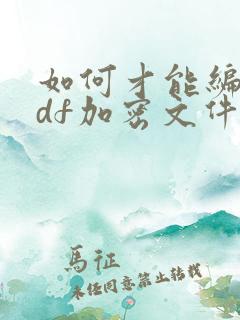 如何才能编
df加密文件
馬征
未经同意禁止转载